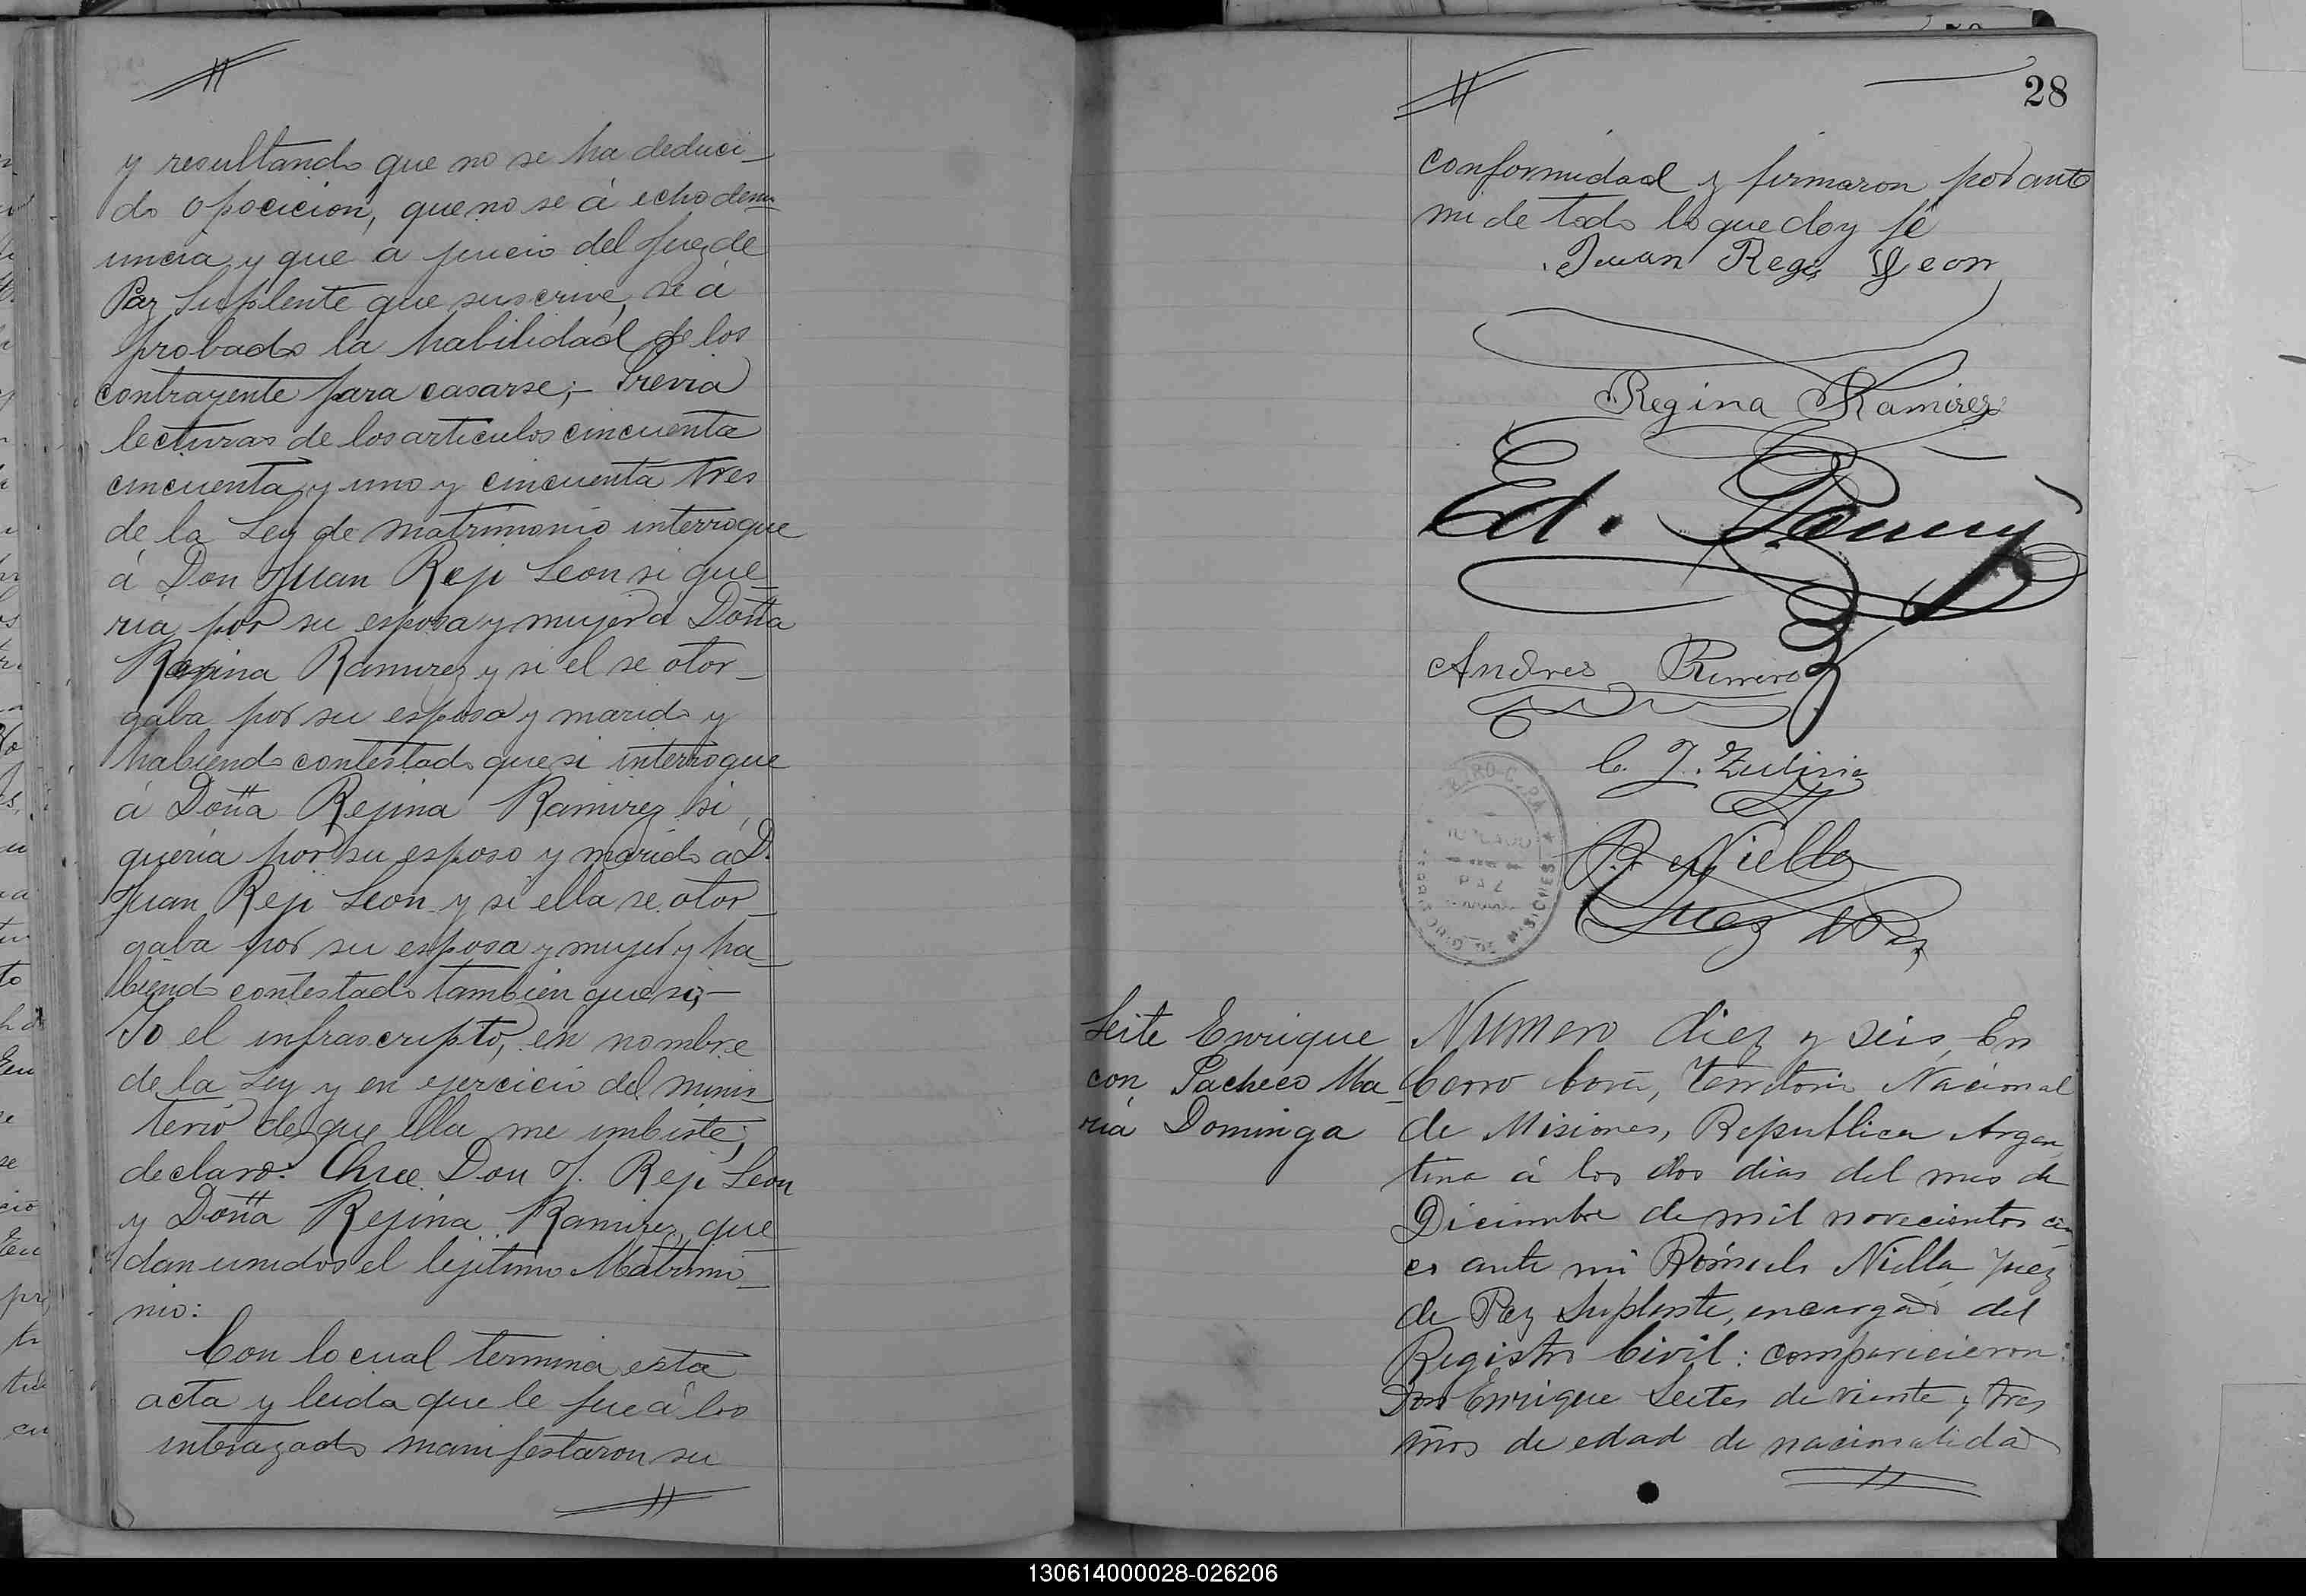 y resultando que no se ha deduci-
do opocicion, que no se á echo denu
uncia y que a juicio del Juez de
Paz Suplente que suscrive, se á
probado la habilidad de los
contrayente para casarse;- Previa
lecturas de los articulos cincuenta
cincuenta y uno y cincuenta tres
de la Ley de matrimonio interrogue
á Don Juan Reji Leon si que
ria por su esposa y mujer á Doña
Regina Ramirez y si el se otor-
gaba por su esposo y marido y
habiendo contestado que si interrogue
á Doña Rejina Ramirez si,
queria por su esposo y marido a D.
Juan Reji Leon y si ella se otor-
gaba por su esposa y mujer y ha-
biendo contestado tambien que si;-
Yo el infrascripto, en nombre
de la Ley y en ejercicio del minis-
terio de que ella me imbiste;
declaro: Que Don J. Reji Leon
y Doña Rejina Ramirez, que
dan unidos el lejitimo Matrimo-
nio:
Con lo cual termina esta
acta y leida que le fue á los
intrazados manifestaron su
28
conformidad y firmaron por ante
mi de todo lo que doy fé
Juan Regis Leon
Regina Ramirez
Ed.
Andres
C. J.
R. Niella
Juez de Paz
PAZ
MISIONES
Leite Enrique
con Pacheco Ma-
ria Dominga
Numero diez y seis, En
Cerro Corá, Territorio Nacional
de Misiones, Republica Argen
tina á los dos dias del mes de
Diciembre de mil novecientos cin
co ante mi Rómulo Niella Juez
de Paz Suplente, encargado del
Registro Civil: comparicieron:
Don Enrique Leites de viente y tres
años de edad de nacionalidad
130614000028-026206